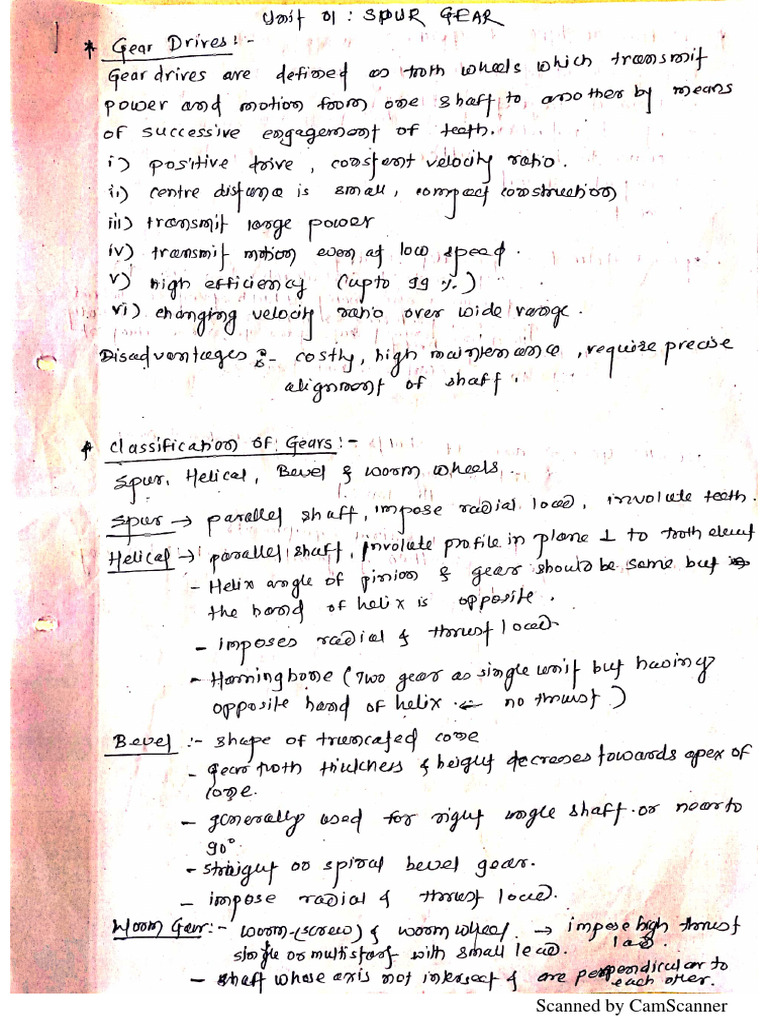 Unit 01 : SPUR GEAR
1
* Gear Drives :-
Gear drives are defined as tooth wheels which transmit
power and motion from one shaft to another by means
of successive engagement of teeth.
i) positive drive , constant velocity ratio .
ii) centre distance is small , compact construction
iii) transmit large power
iv) transmit motion even at low speed .
v) high efficiency (upto 99 %.)
vi) changing velocity ratio over wide range .
Disadvantages :- costly , high maintenance , require precise
alignment of shaft .
* Classification of Gears :-
Spur, Helical , Bevel & worm wheels .
Spur → parallel shaft , impose radial load , involute teeth .
Helical → parallel shaft , Involute profile in plane ⊥ to tooth elemt
- Helix angle of pinion & gear should be same but
the hand of helix is opposite .
- imposes radial & thrust load
- Harringbone ( Two gear as single unit but having
opposite hand of helix ← no thrust )
Bevel :- shape of truncated cone
- gear tooth thickness & height decreases towards apex of
cone.
- generally used for right angle shaft or near to
90°
- straight or spiral bevel gear.
- impose radial & thrust load .
Worm Gear :- worm-(screw) & worm wheel → impose high thrust
load .
single or multistart with small lead .
- shaft whose axis not intersect & are perpendicular to
each other.
Scanned by CamScanner